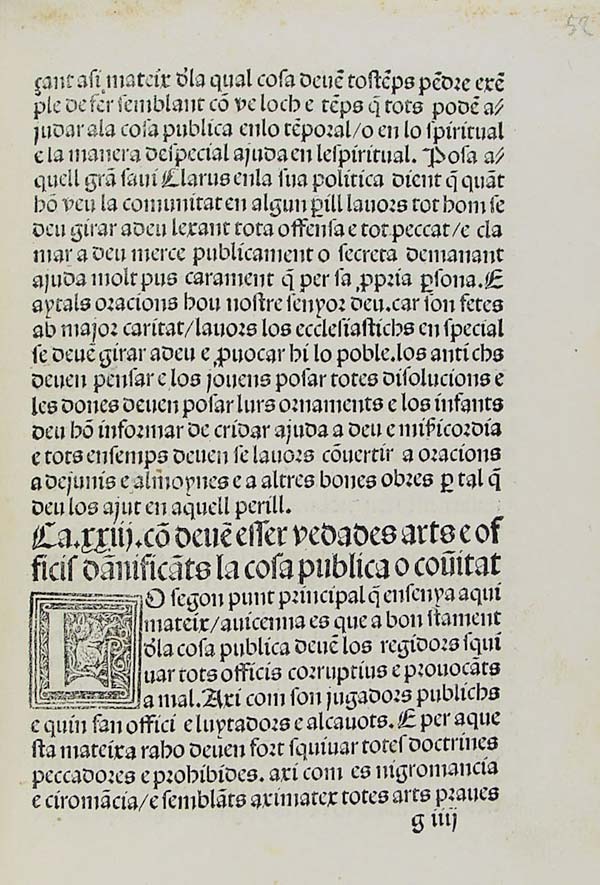 52
çant asi mateix d̄la qual cosa deuē tostēps pēdre exē
ple de fer semblant cō ve loch e tēps q̄ tots podē a/
judar ala cosa publica enlo tēporal/o en lo spiritual
e la manera despecial ajuda en lespiritual. Posa a/
quell grā saui Clarus enla sua politica dient q̄ quāt
hō veu la comunitat en algun ꝑill lauors tot hom se
deu girar a deu lexant tota offensa e tot peccat/e cla
mar a deu merce publicament o secreta demanant
ajuda molt pus carament q̄ per sa ꝓpria ꝑsona.E
aytals oracions hou nostre senyor deu.car son fetes
ab major caritat/lauors los ecclesiastichs en special
se deuē girar a deu e ꝓuocar hi lo poble.los antichs
deuen pensar e los jouens posar totes disolucions e
les dones deuen posar lurs ornaments e los infants
deu hō informar de cridar ajuda a deu e mīicordia
e tots ensemps deuen se lauors cōuertir a oracions
a dejunis e almoynes e a altres bones obres ꝑ tal q̄
deu los ajut en aquell perill.
Ca.xxiij.cō deuē esser vedades arts e of
ficis dānificāts la cosa publica o coūitat
LO segon punt principal q̄ ensenya aqui
mateix/auicenna es que a bon stament
d̄la cosa publica deuē los regidors squi
uar tots officis corruptius e prouocāts
a mal. Axi com son jugadors publichs
e quin san offici e luytadors e alcauots. E per aque
sta mateixa raho deuen fort squiuar totes doctrines
peccadores e prohibides. axi com es nigromancia
e ciromācia/e semblāts aximatex totes arts praues
g iiij